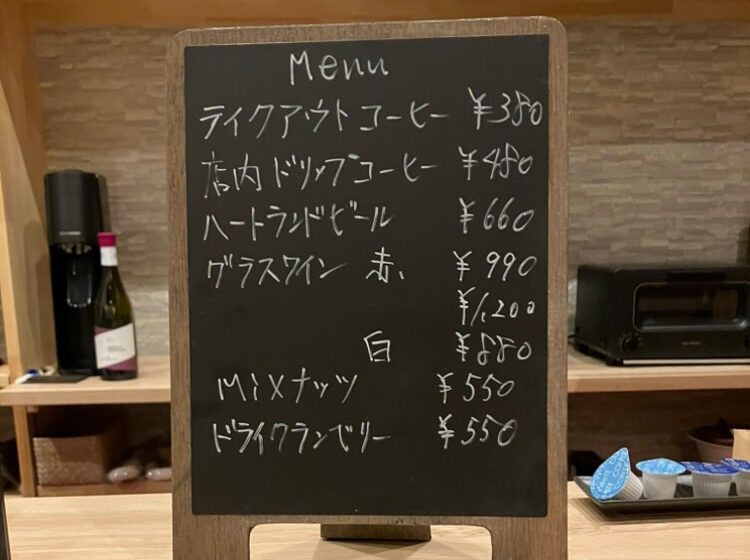 Menu
テイクアウトコーヒー ¥380
店内ドリップコーヒー ¥480
ハートランドビール ¥660
グラスワイン 赤、 ¥990
¥1,200
白 ¥880
MiXナッツ ¥550
ドライクランベリー ¥550